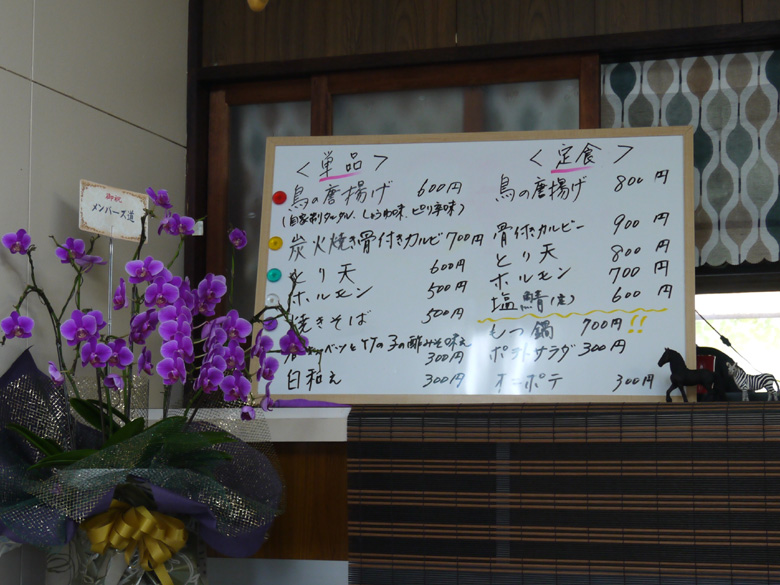 御祝
メンバーズ道
<単品>
鳥の唐揚げ 600円
(自家製タルタル、しょうゆ味、ピリ辛味)
炭火焼き骨付きカルビ 700円
とり天 600円
ホルモン 500円
焼きそば 500円
竹の子の酢みそ和え
300円
白和え 300円
<定食>
鳥の唐揚げ 800円
骨付きカルビー 900円
とり天 800円
ホルモン 700円
塩鯖(定) 600円
もつ鍋 700円!!
ポテトサラダ 300円
ポテ 300円